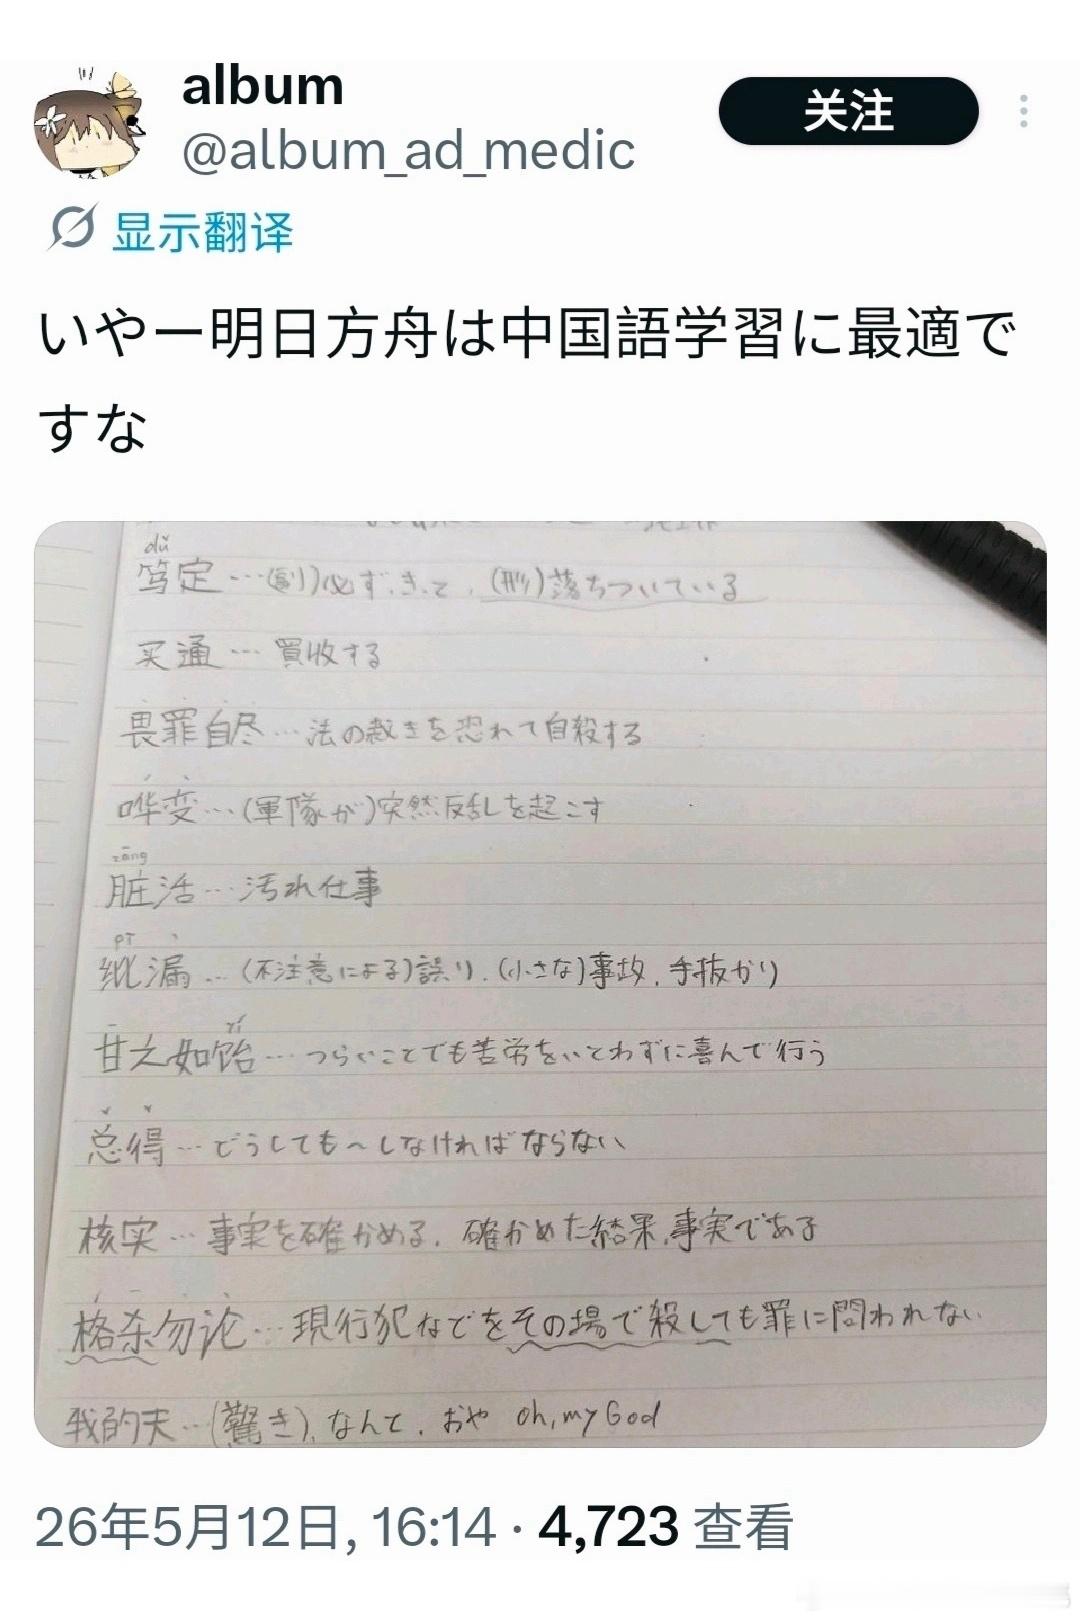 album
关注
@album_ad_medic
显示翻译
いやー明日方舟は中国語学習に最適で
すな
dǔ
笃定…(副)必ず、きっと、(形)落ちついている
买通…買収する
畏罪自尽…法の裁きを恐れて自殺する
哗变…(軍隊が)突然反乱を起こす
zāng
脏活…汚れ仕事
pī
纰漏…(不注意による)誤り、(小さな)事故、手抜かり
yí
甘之如饴…つらいことでも苦労をいとわずに喜んで行う
总得…どうしても~しなければならない
核实…事実を確かめる、確かめた結果、事実である
格杀勿论…現行犯などをその場で殺しても罪に問われない
我的天…(驚き)、なんと、おや oh, my God
26年5月12日, 16:14 · 4,723 查看